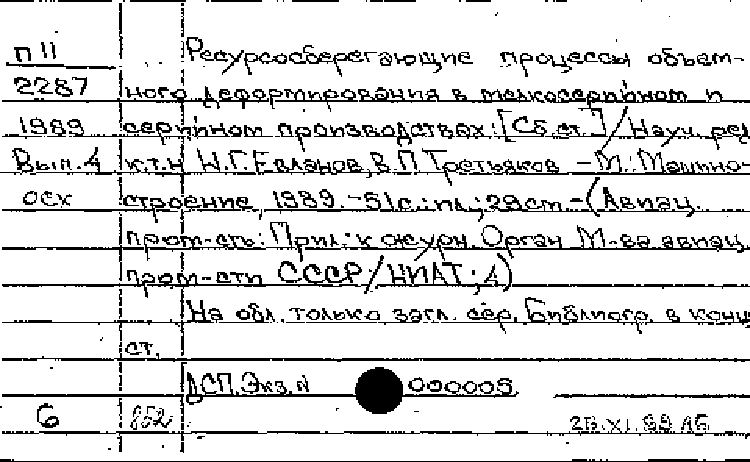 П 11 Ресурсосберегающие процессы объем-
2287 ного деформирования в мелкосерийном и
1989 серийном производствах: [Сб. ст.] / Науч. ред.
Вып. 4 к.т.н. И.Г. Евланов, В.П. Третьяков. - М.: Машино-
осх строение, 1989. - 51 с.: ил.; 29 см - (Авиац.
пром-сть: Прил. к журн. Орган М-ва авиац.
пром-сти СССР / НИАТ; 4)
На обл. только загл. сер. Библиогр. в конце
ст.
ДСП. Экз. N 000005
6 852 28.XI.89 АБ